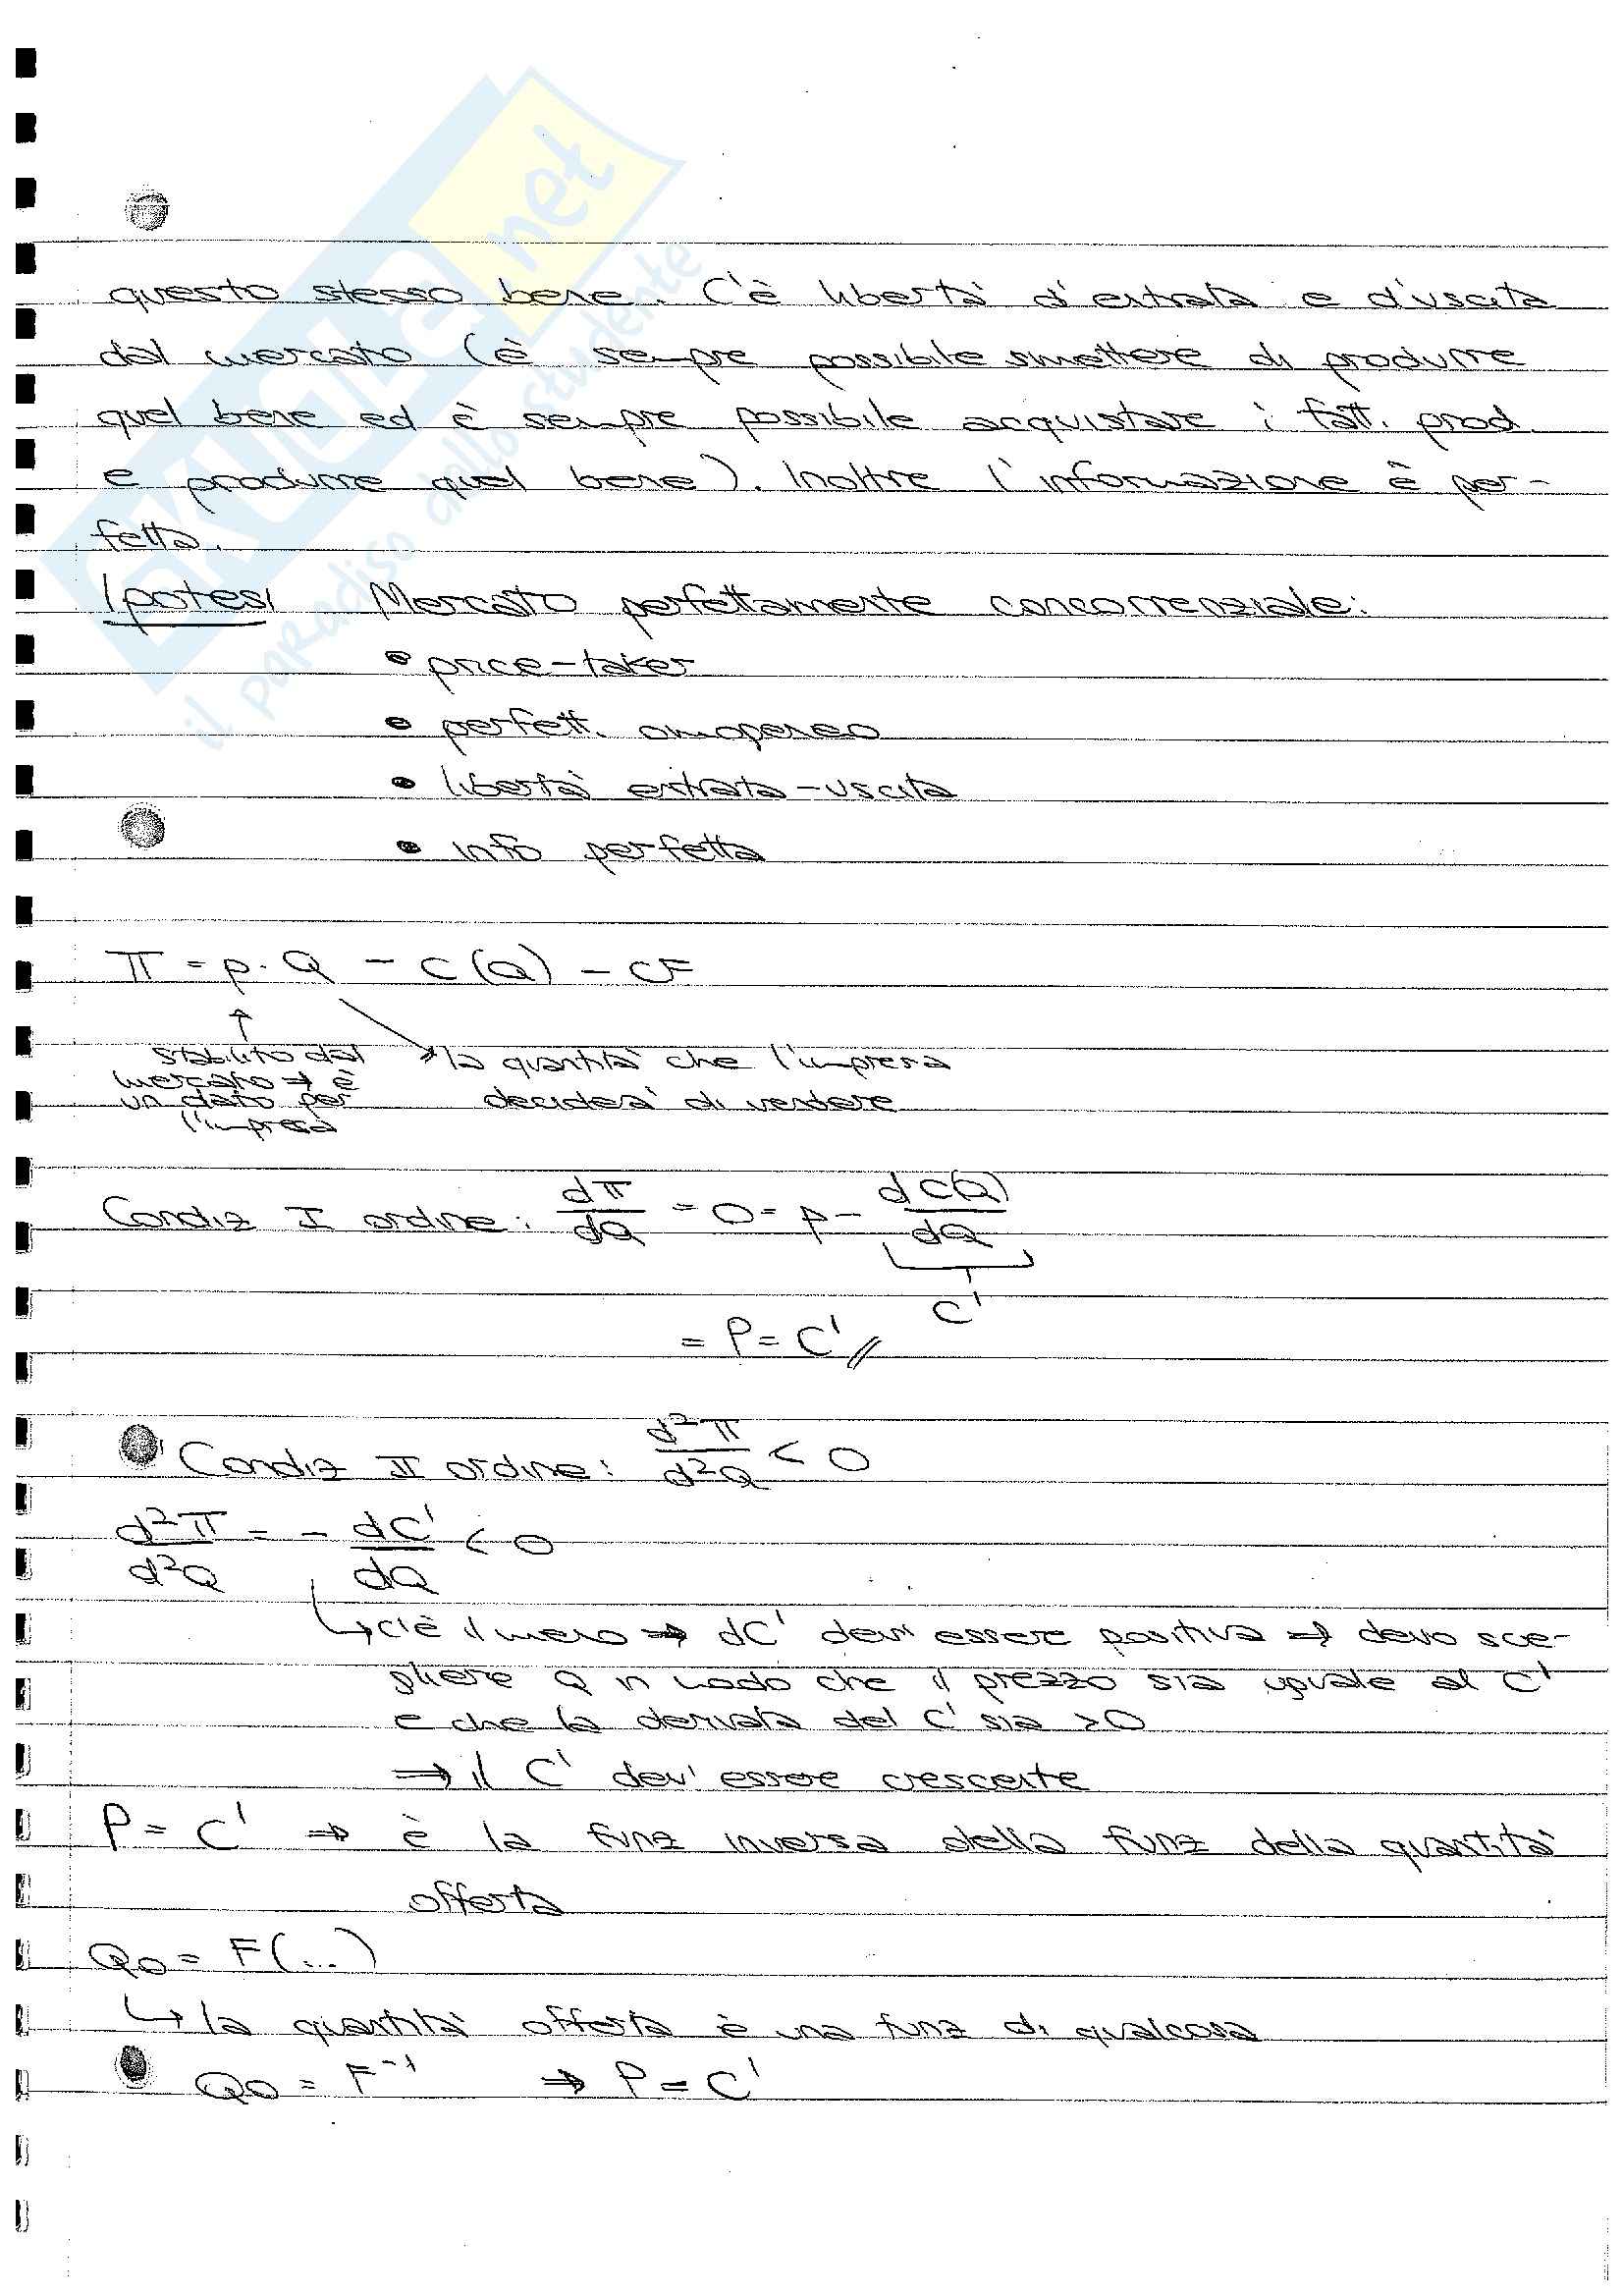 SKUOLA.net
il paradiso dello studente
questo stesso bene. C'è libertà d'entrata e d'uscita
dal mercato (è sempre possibile smettere di produrre
quel bene ed è sempre possibile acquistare i fatt. prod.
e produrre quel bene). Inoltre l'informazione è per-
fetta.
Ipotesi Mercato perfettamente concorrenziale:
• price-taker
• perfett. omogeneo
• libertà entrata-uscita
• info perfetta
π = p · Q - C(Q) - CF
↑ stabilito dal mercato ⇒ è un dato per l'impresa
↘ la quantità che l'impresa
deciderà di vendere
Condiz I ordine: dπ/dQ = 0 = p - dC(Q)/dQ
C'
= P = C' //
Condiz II ordine: d²π/d²Q < 0
d²π/d²Q = - dC'/dQ < 0
↳ c'è il meno ⇒ dC' dev'essere positiva ⇒ devo sce-
gliere Q in modo che il prezzo sia uguale al C'
e che la derivata del C' sia >0
⇒ il C' dev'essere crescente
P = C' ⇒ è la funz inversa della funz della quantità
offerta
QO = F(...)
↳ la quantità offerta è una funz di qualcosa
QO = F⁻¹ ⇒ P = C'